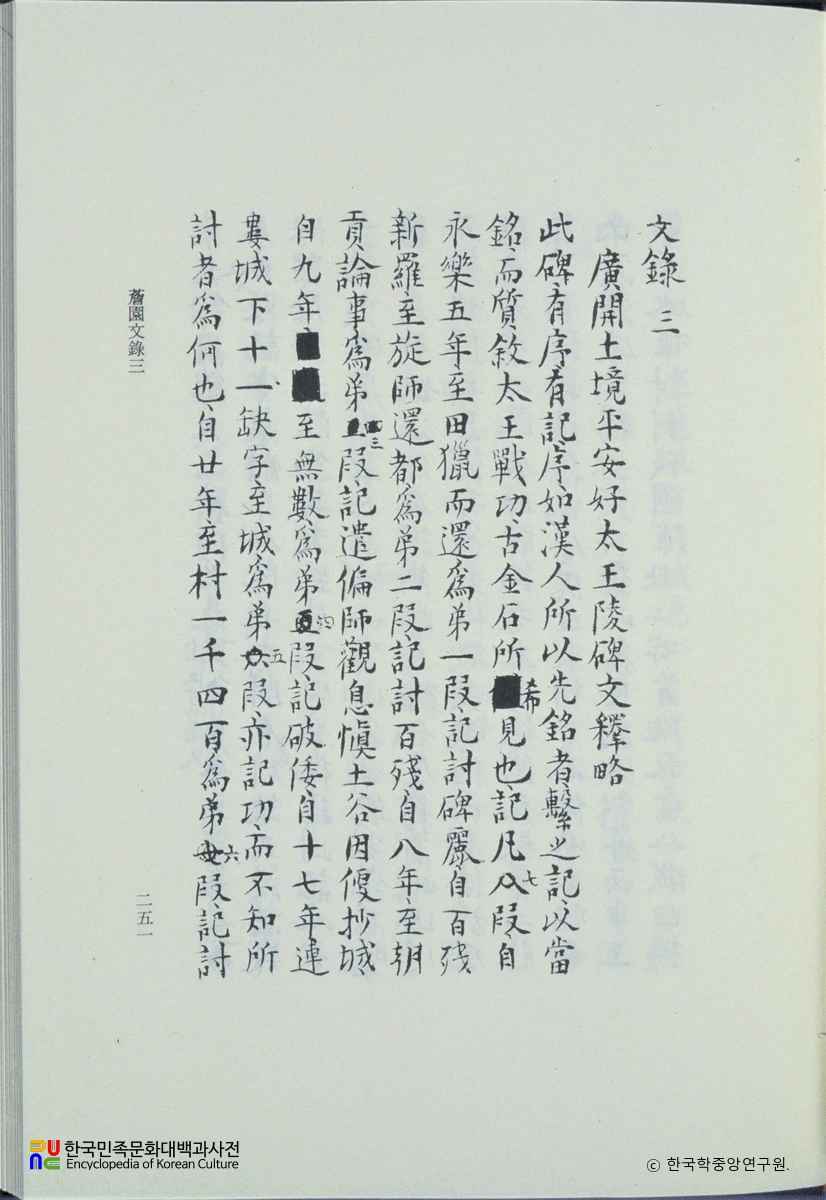 文錄 三
廣開土境平安好太王陵碑文釋略
此碑有序有記序如漢人所以先銘者繫之記以當
銘而質敘太王戰功古金石所希見也記凡七叚自
永樂五年至田獵而還爲弟一叚記討碑麗自百殘
新羅至旋師還都爲弟二叚記討百殘自八年至朝
貢論事爲弟三叚記遣偏師觀息愼土谷因便抄城
自九年至無數爲弟四叚記破倭自十七年連
婁城下十一缺字至城爲弟五叚亦記功而不知所
討者爲何也自廿年至村一千四百爲弟六叚記討
薝園文錄三
二五一
한국민족문화대백과사전
Encyclopedia of Korean Culture
ⓒ 한국학중앙연구원.